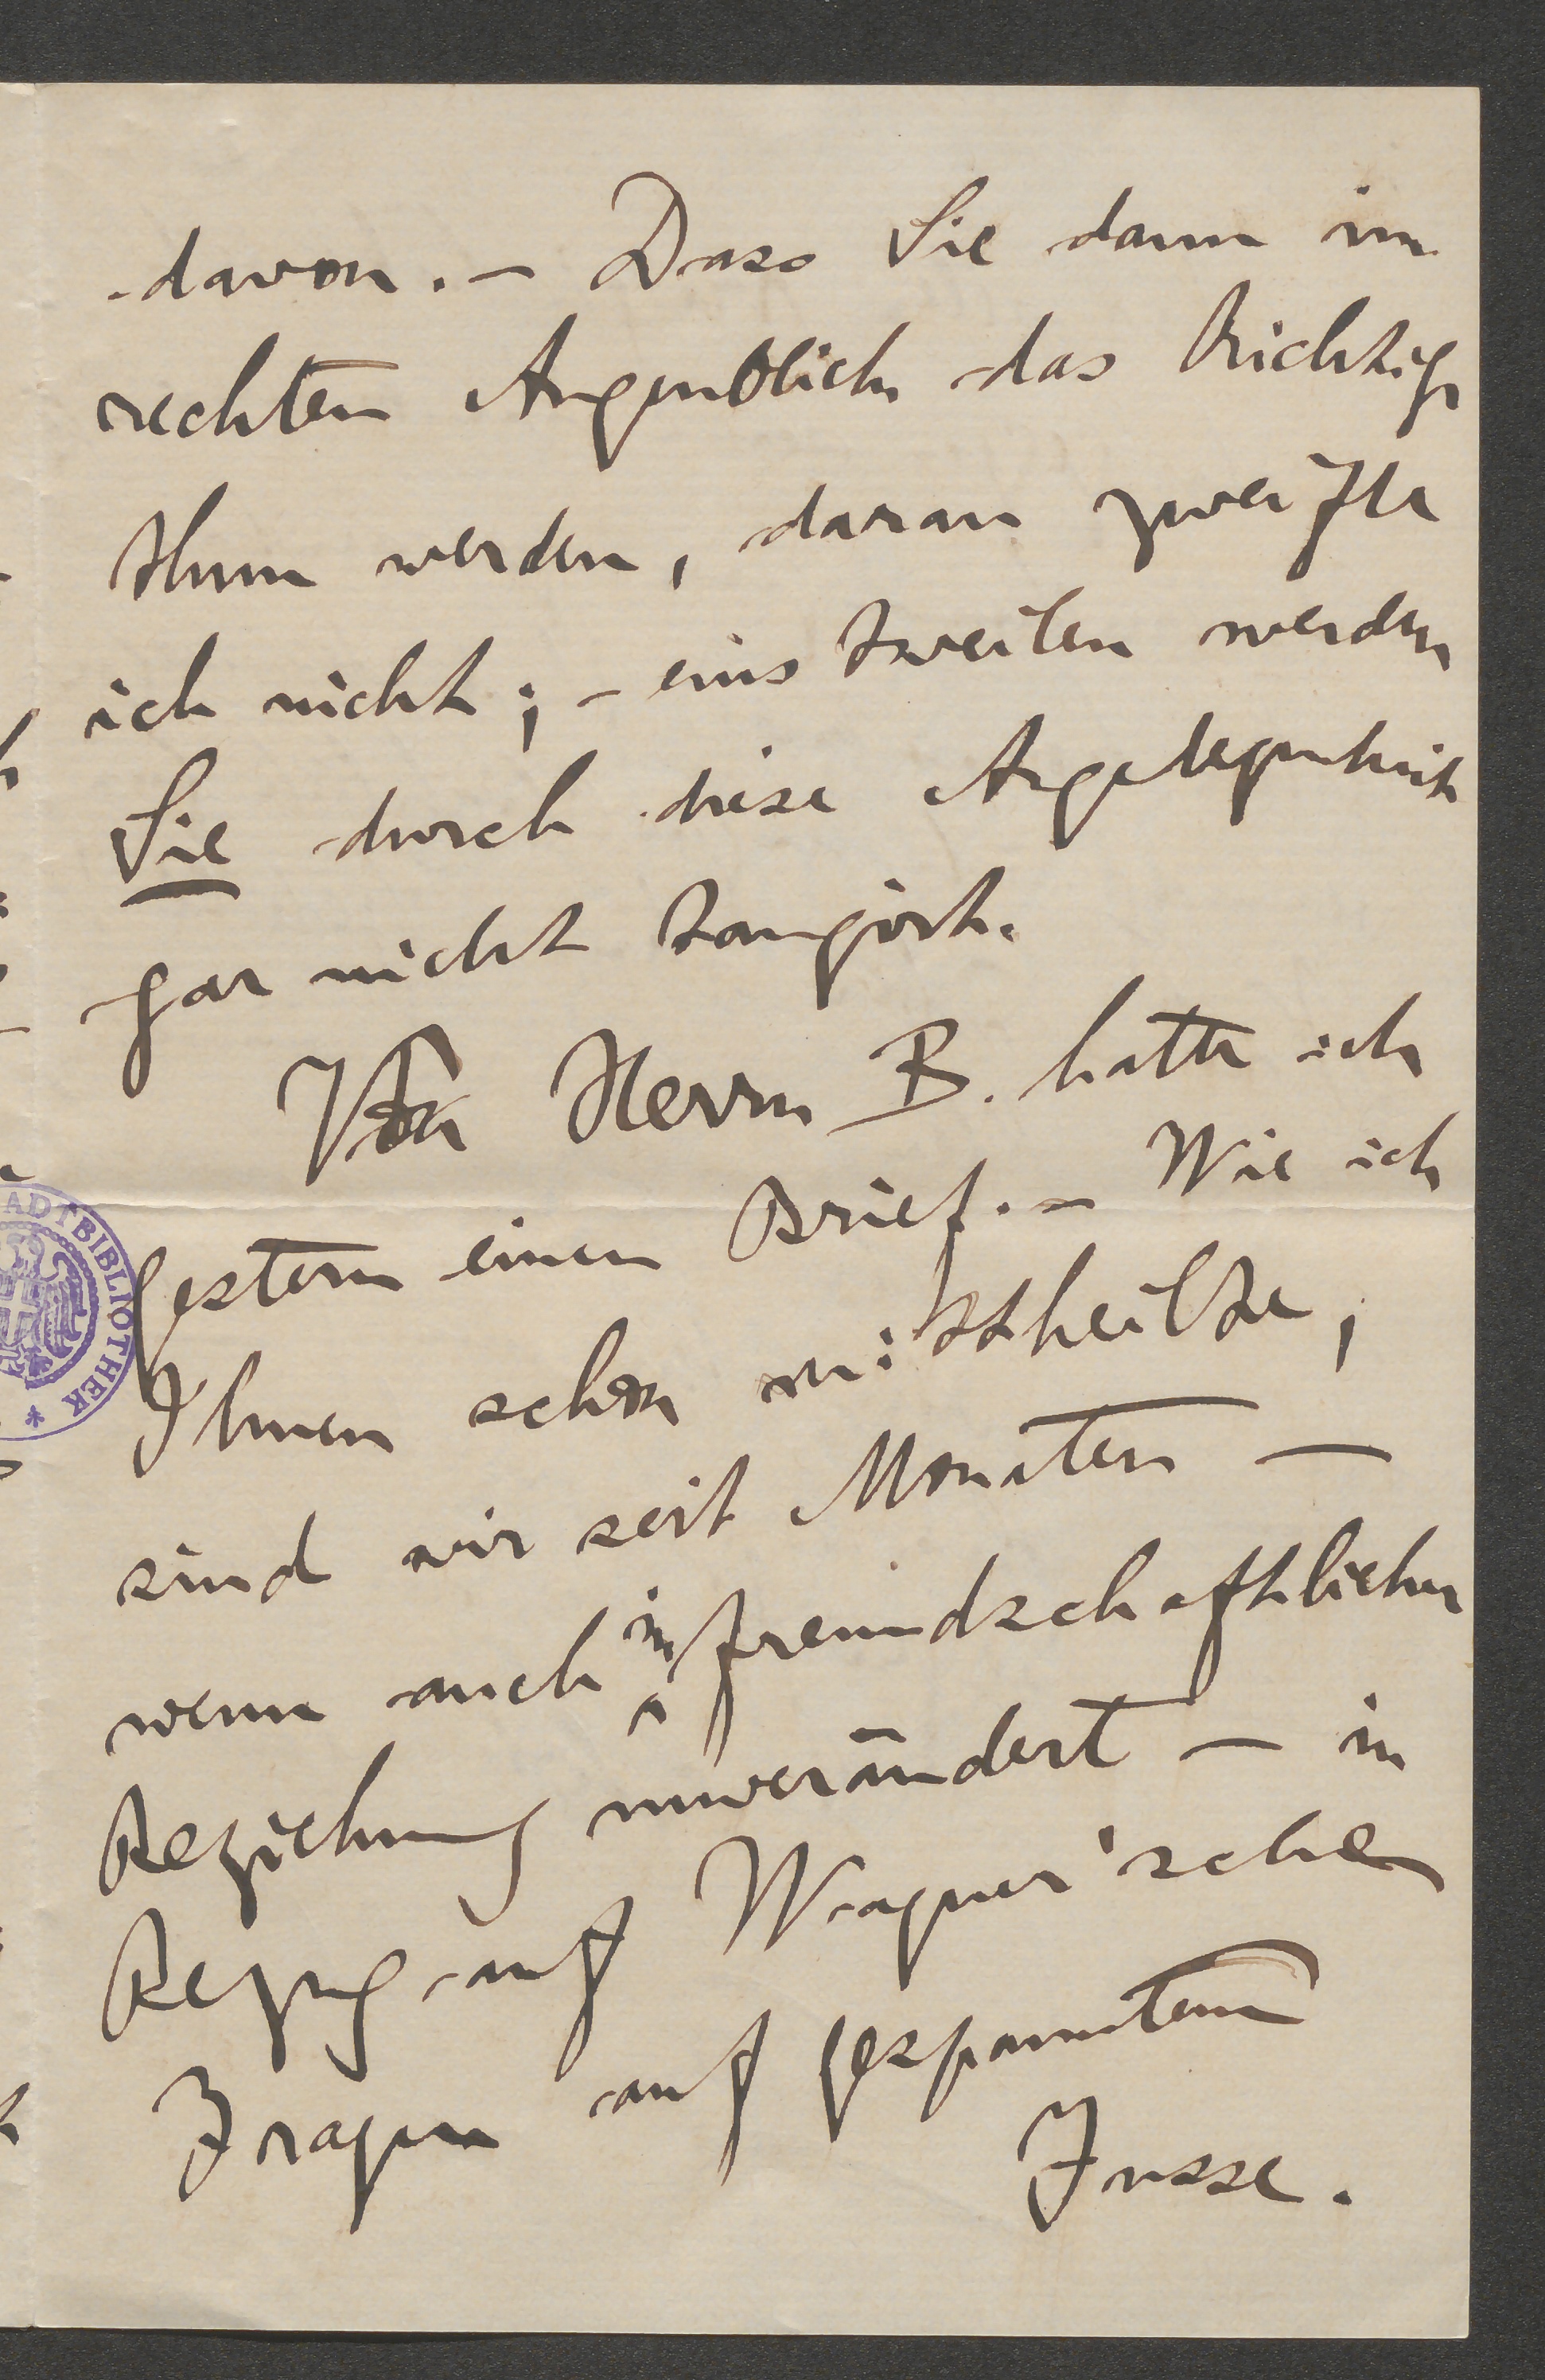 davon. – Dass Sie dann im
rechten Augenblick das Richtige
thun werden, daran zweifle
ich nicht; – eins zweilen werden
Sie durch diese Angelegenheit
gar nicht tangirt.
Von Herrn B. hatte ich
gestern einen Brief. – Wie ich
Ihnen schon mittheilte,
sind wir seit Monaten –
wenn auch in freundschaftlicher
Beziehung unverändert – in
Bezug auf Wagner'sche
Fragen auf gespanntem
Fusse.
ADTBIBLIOTHEK *